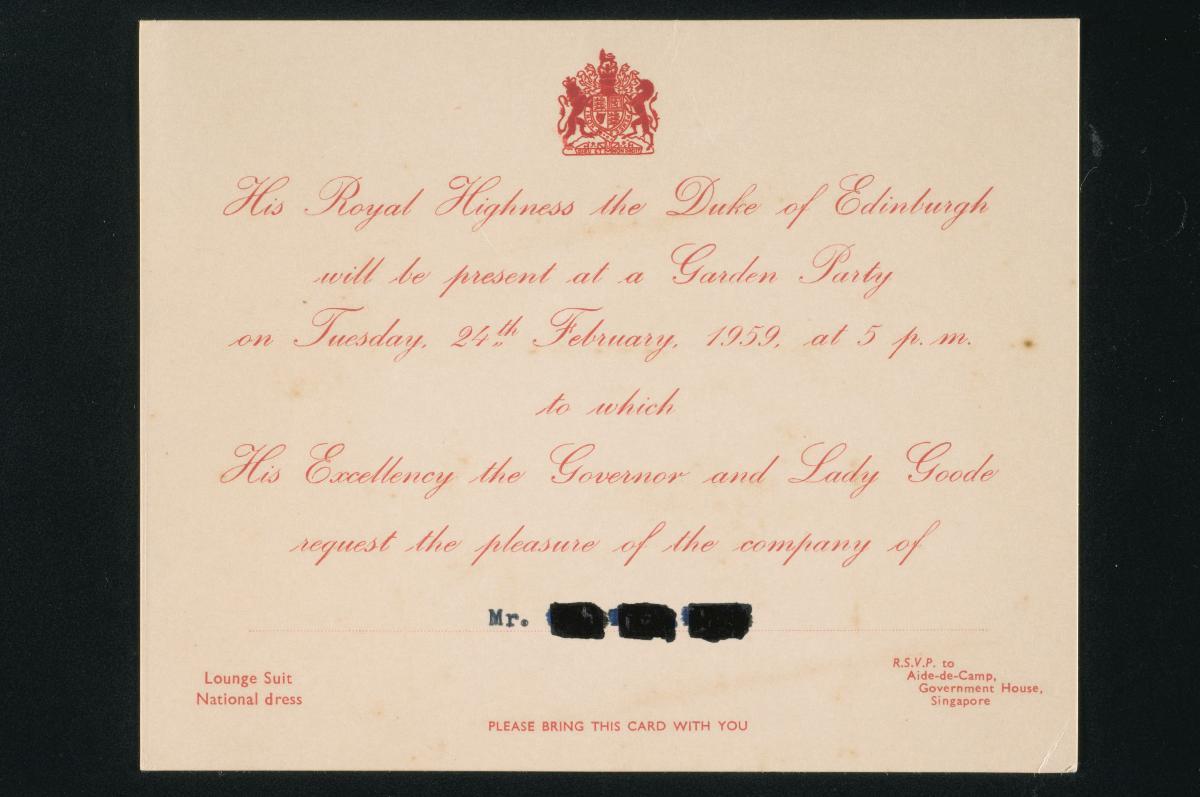 His Royal Highness the Duke of Edinburgh
will be present at a Garden Party
on Tuesday, 24th February, 1959, at 5 p.m.
to which
His Excellency the Governor and Lady Goode
request the pleasure of the company of
Mr.
Lounge Suit
National dress
R.S.V.P. to
Aide-de-Camp,
Government House,
Singapore
PLEASE BRING THIS CARD WITH YOU